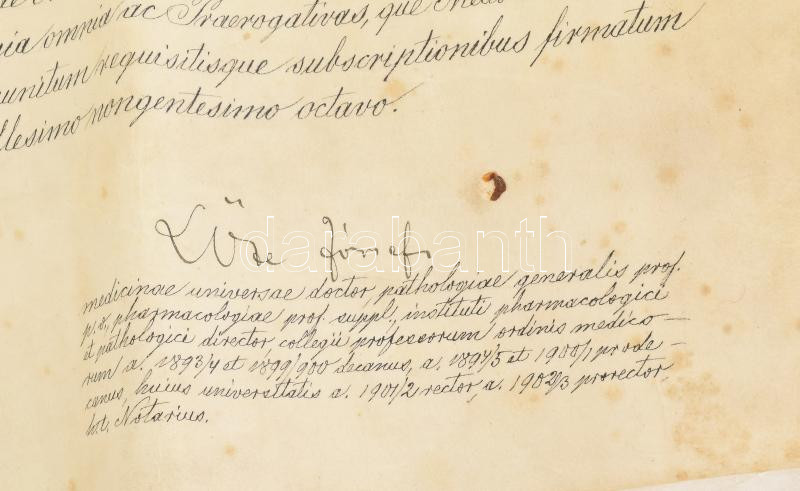 omnia ac Praerogativas, que
requisitisque subscriptionibus firmatum
nongentesimo octavo.
Lőte József,
darabanth
medicinae universae doctor, pathologiae generalis prof.
p. o., pharmacologiae prof. suppl., instituti pharmacologici
et pathologici director, collegii professorum ordinis medico-
rum a. 1893/4 et 1899/900 decanus, a. 1894/5 et 1900/1 prode-
canus, huius universitatis a. 1901/2 rector, a. 1902/3 prorector,
h. t. Notarius.